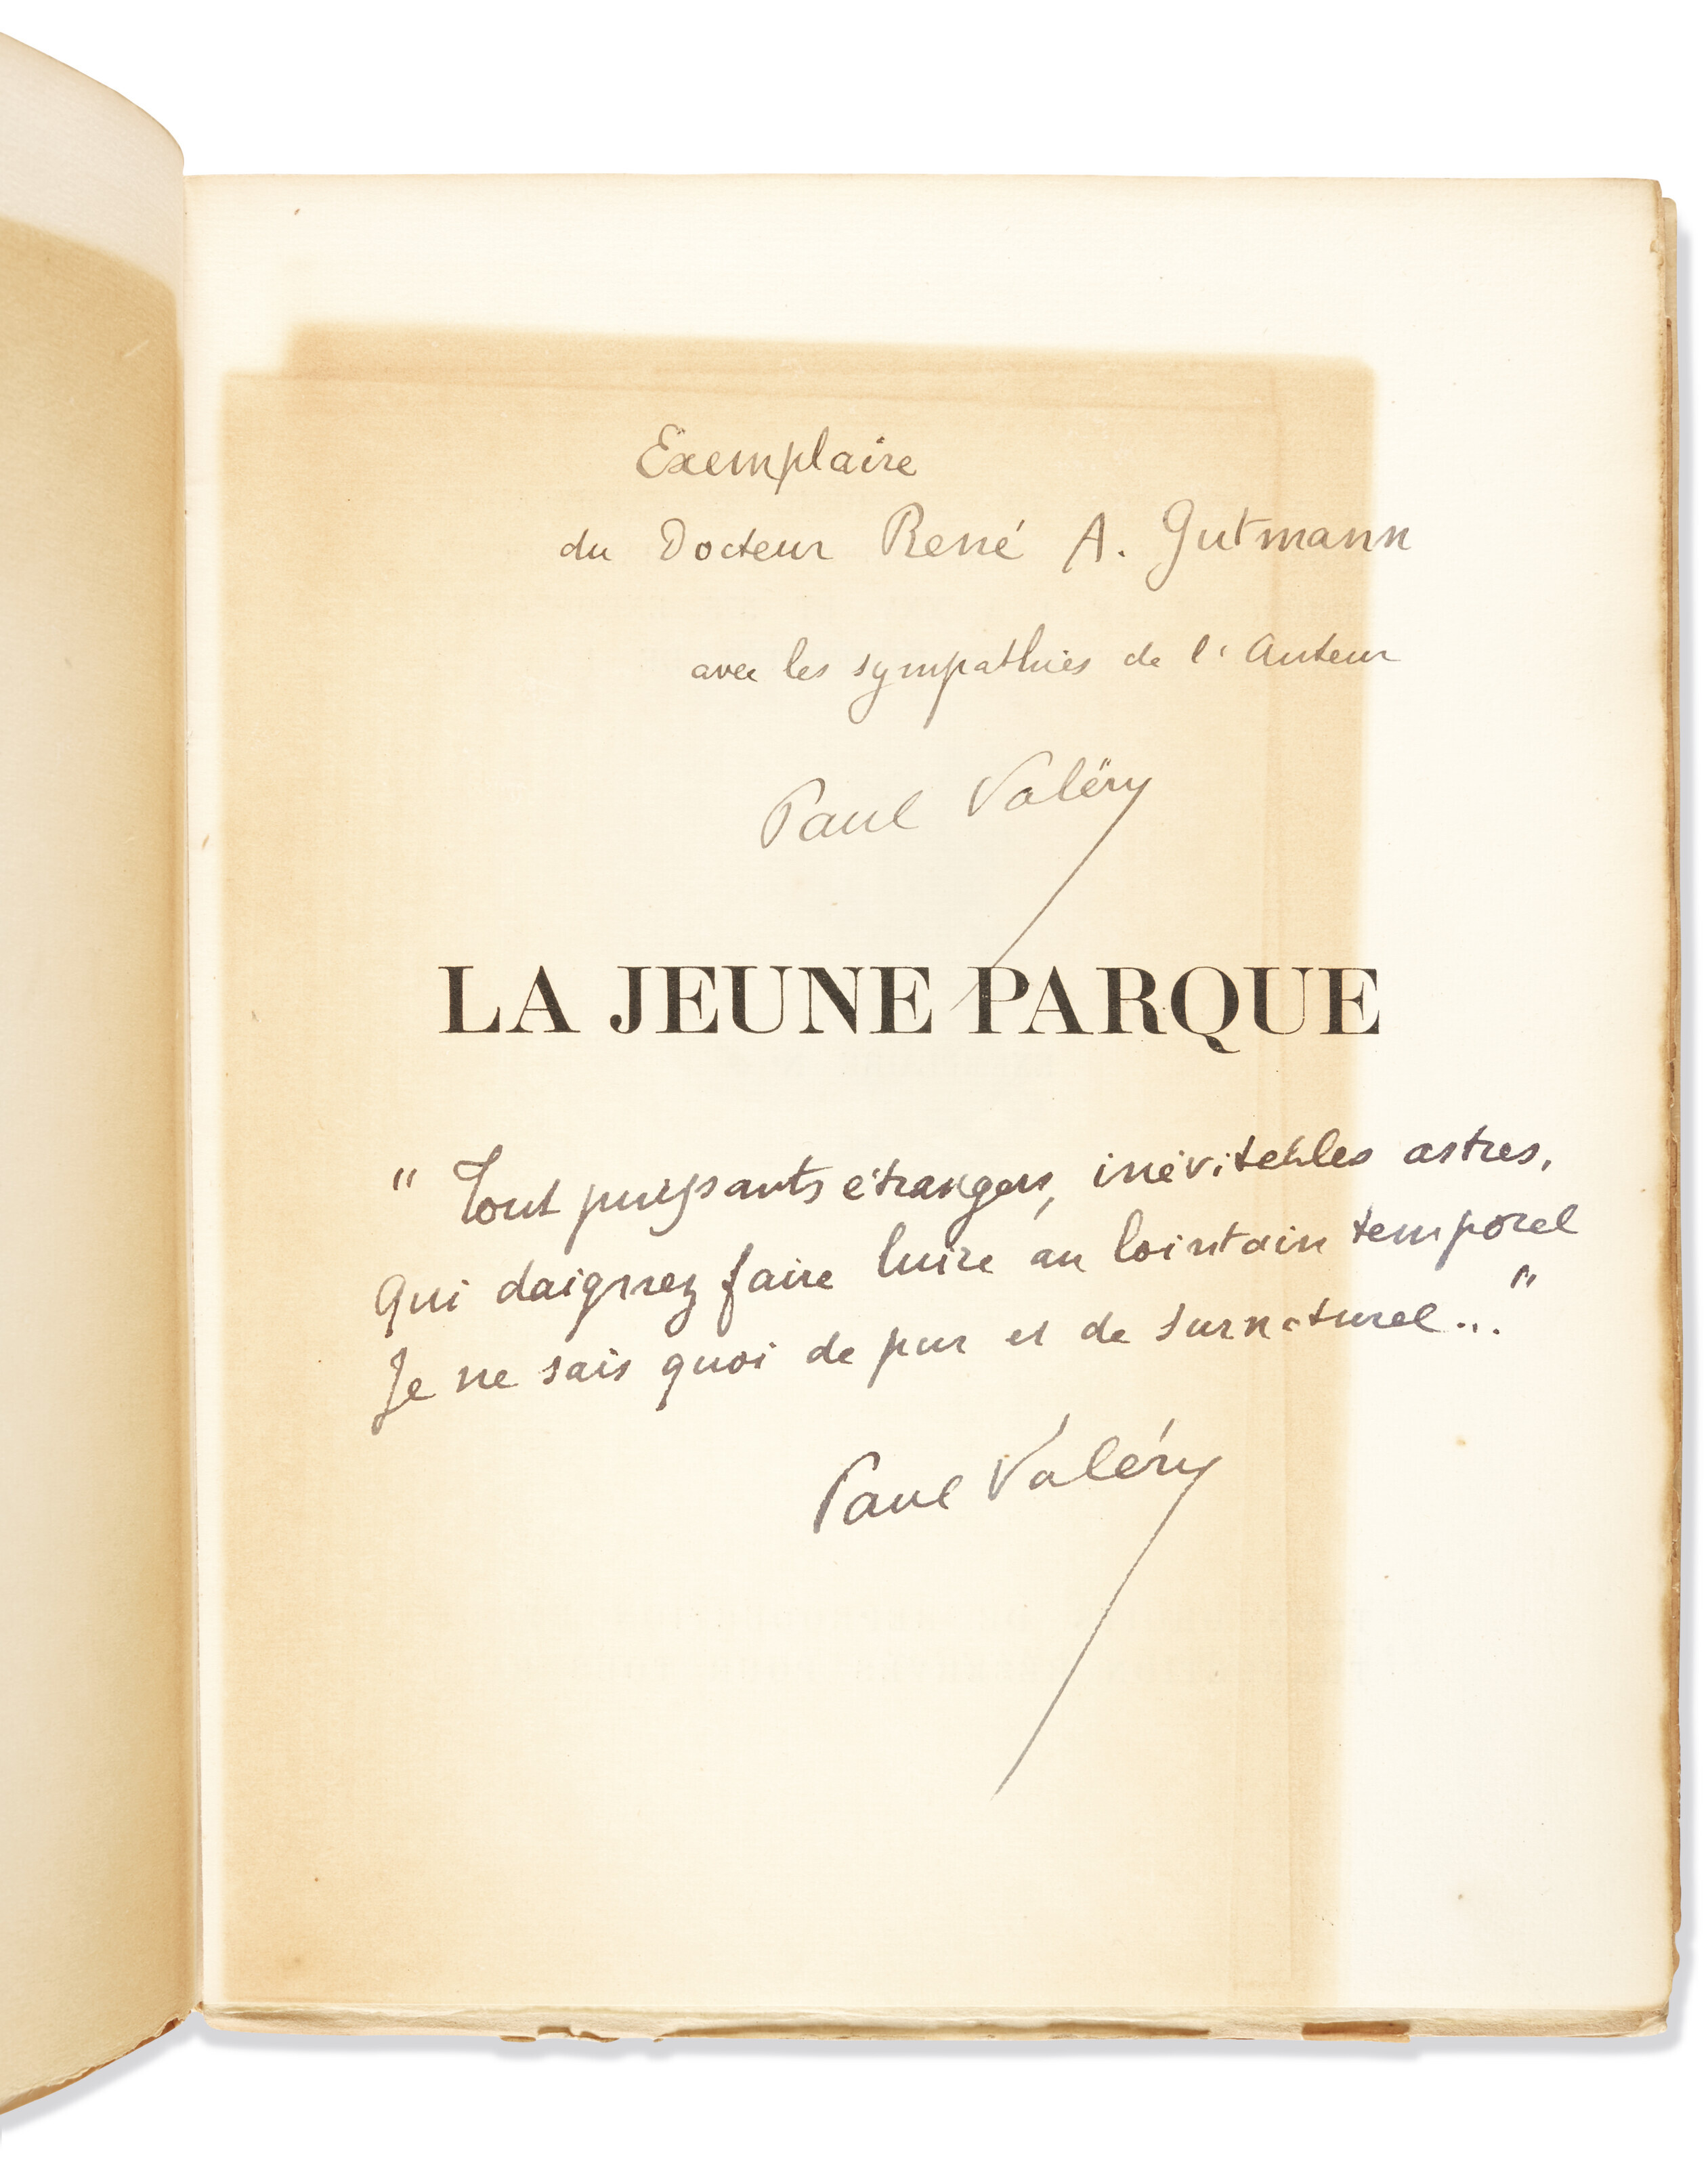 Exemplaire
du Docteur René A. Gutmann
avec les sympathies de l'Auteur
Paul Valéry
LA JEUNE PARQUE
" Tout puissants étrangers, inévitables astres,
Qui daignez faire luire au lointain temporel
Je ne sais quoi de pur et de surnaturel... "
Paul Valéry